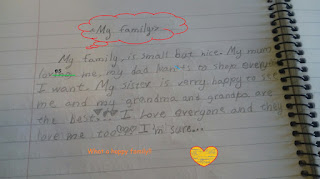 My family
My family is small but nice. My mum
loves me, my dad wants to shope everyth
I want. My sister is very happy to see
me and my grandma and grandpa are
the best... I love everyone and they
love me too I'm sure...
What a happy family!